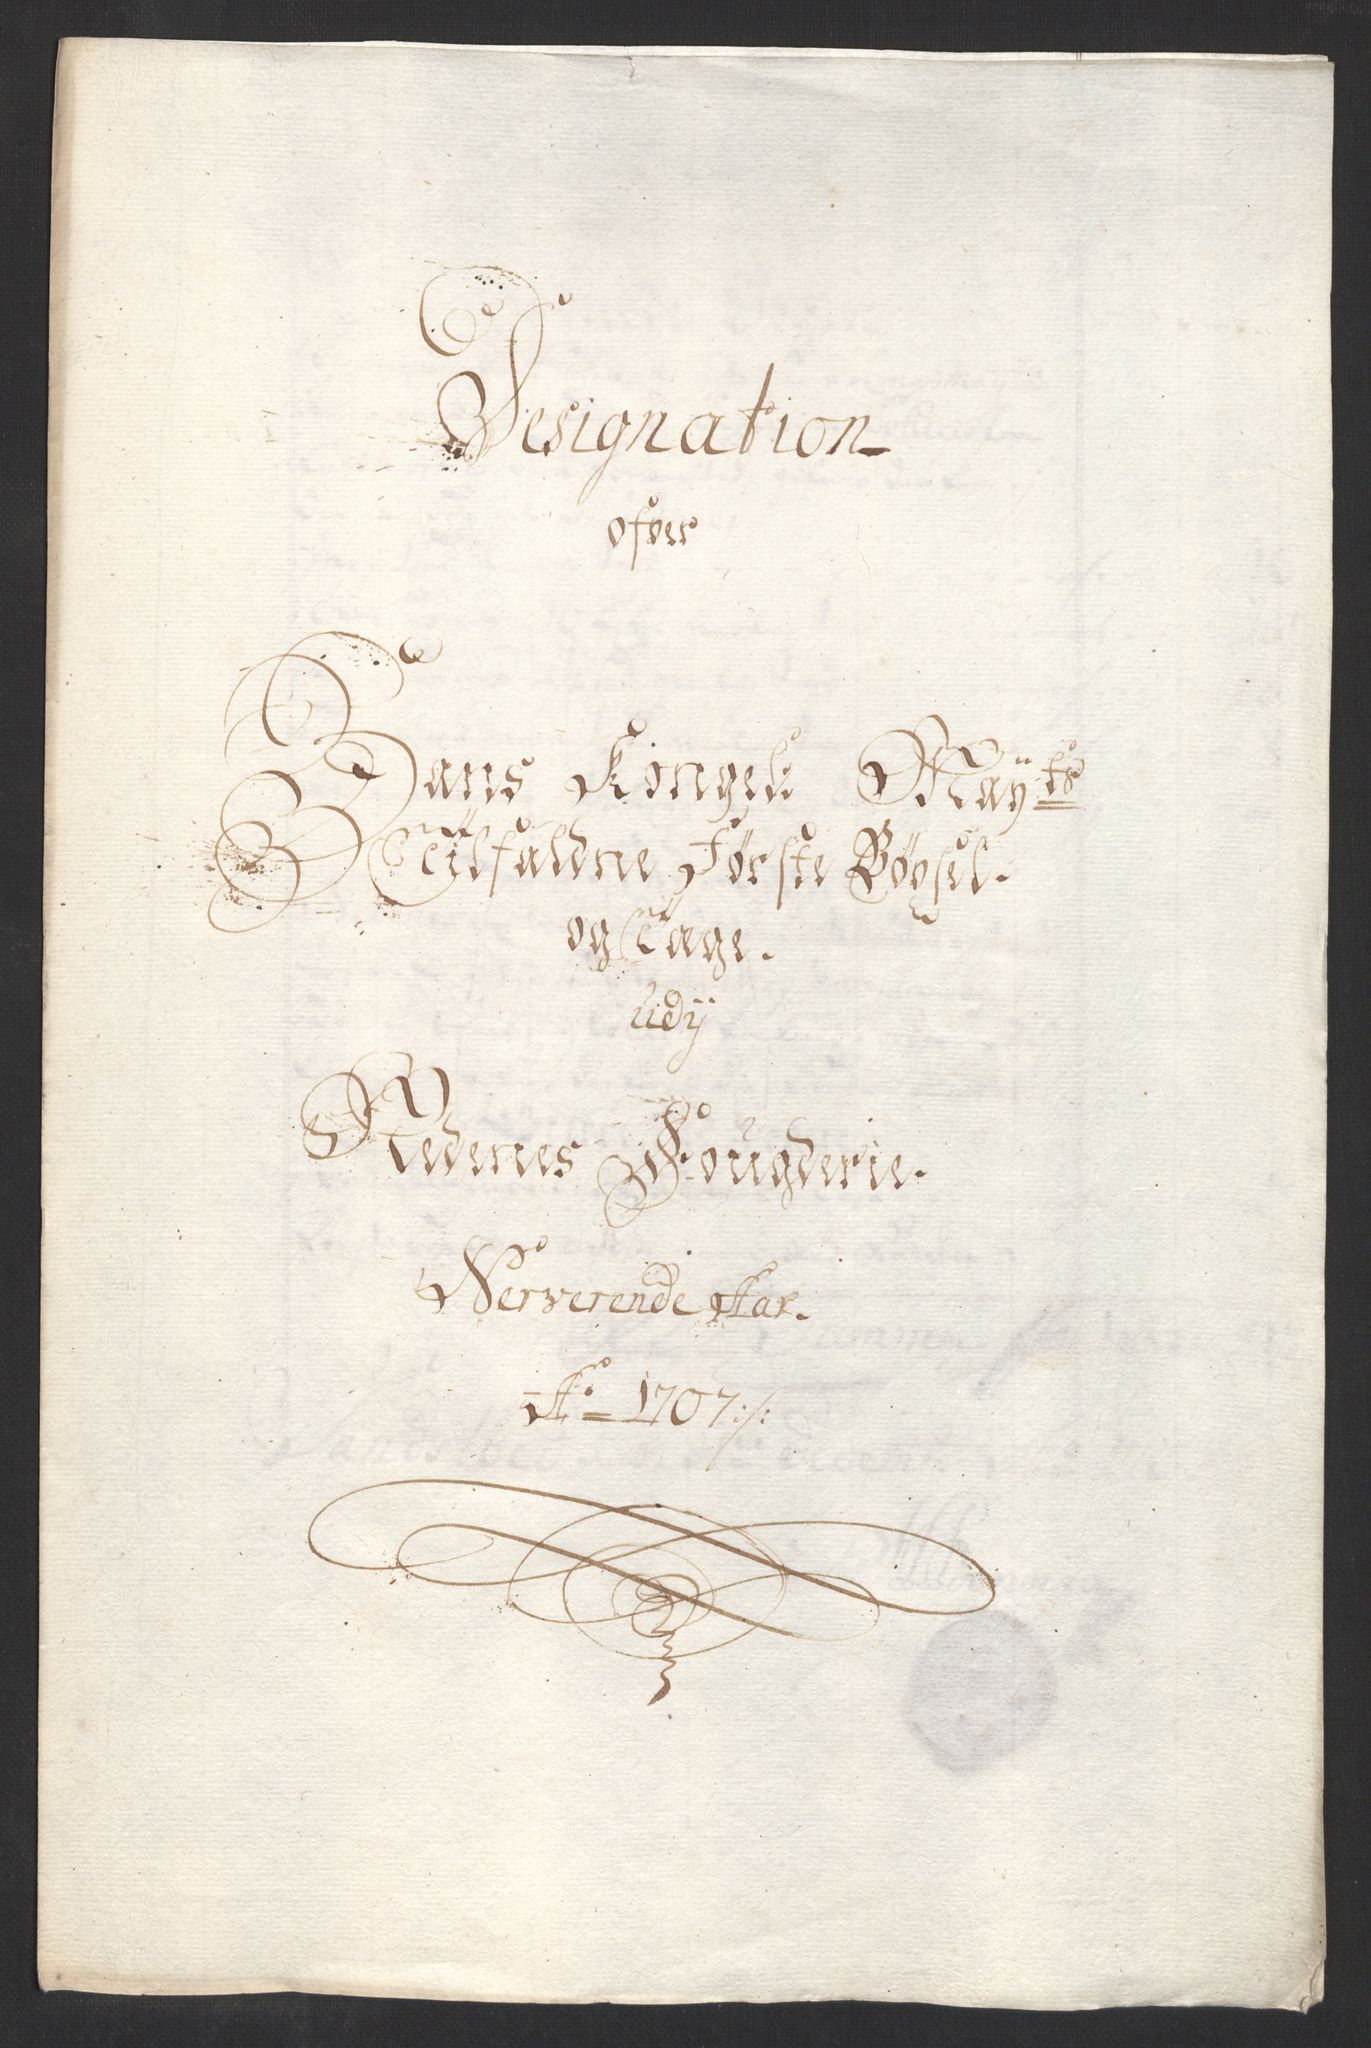 Designation
ofver
Hans Kongel: Maÿts
Tilfaldne Første Bøysel
og Tage.
udÿ
Nedenes Fougderie.
Nerverende Aar.
Ao 1707:/: